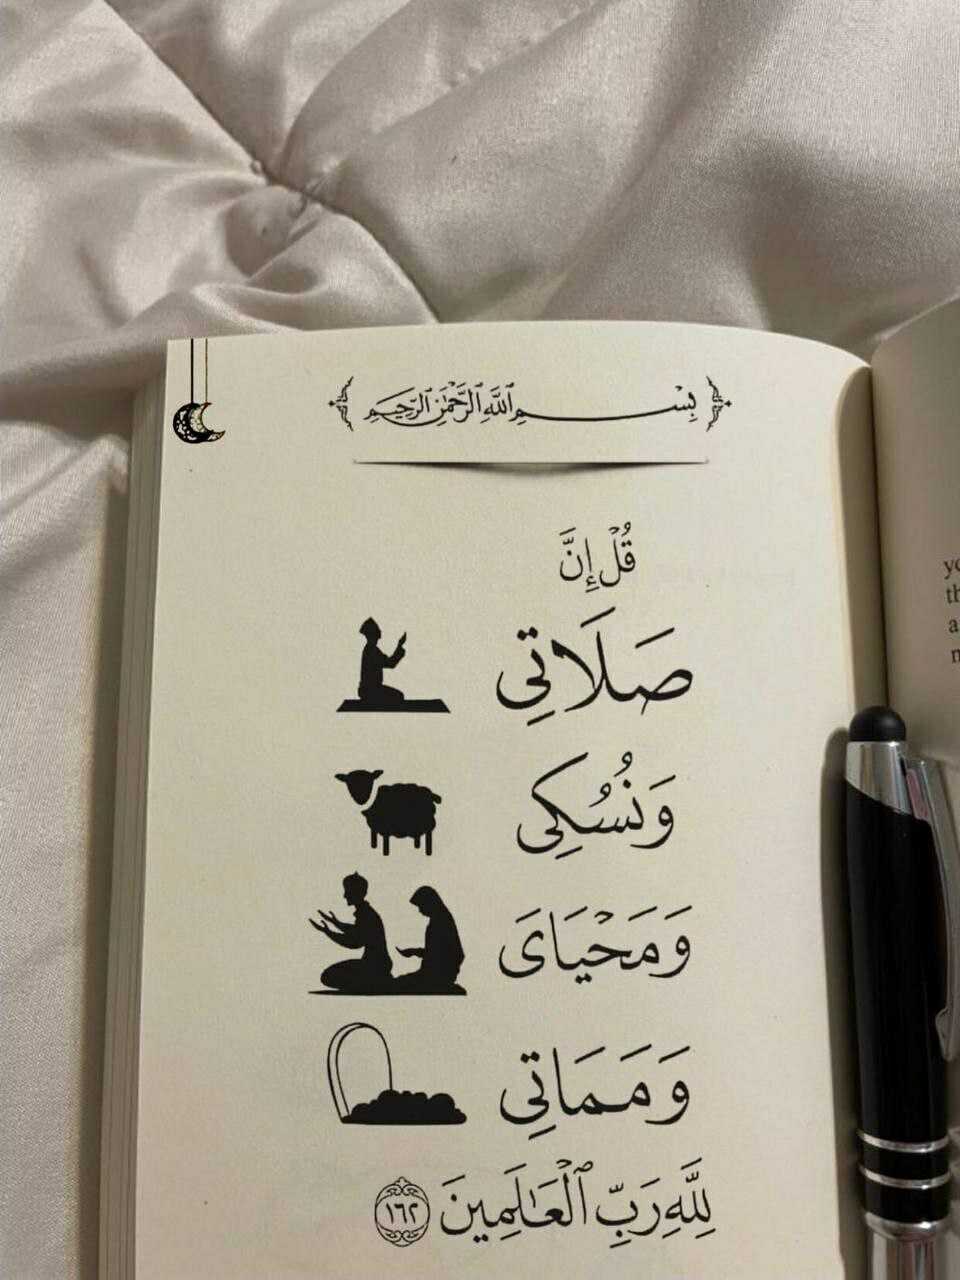 بِسْمِ ٱللَّهِ ٱلرَّحْمَٰنِ ٱلرَّحِيمِ
قُلْ إِنَّ
صَلَاتِي
وَنُسُكِى
وَمَحْيَاىَ
وَمَمَاتِي
لِلَّهِ رَبِّ ٱلْعَٰلَمِينَ ١٦٢
yo
th
a